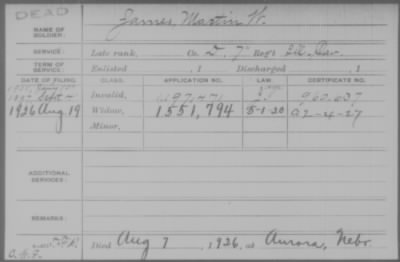 DEAD
NAME OF SOLDIER: James, Martin W.
SERVICE: Late rank, Co. D, 7" Reg't Ill. Cav.
TERM OF SERVICE: Enlisted , 1 Discharged , 1
DATE OF FILING. CLASS. APPLICATION NO. LAW. CERTIFICATE NO.
Invalid, 960.637
1926 Aug 19 Widow, 1551,794 5-1-20 A2-4-27
Minor,
ADDITIONAL SERVICES:
REMARKS:
Died Aug 7, 1926, at Aurora, Nebr.